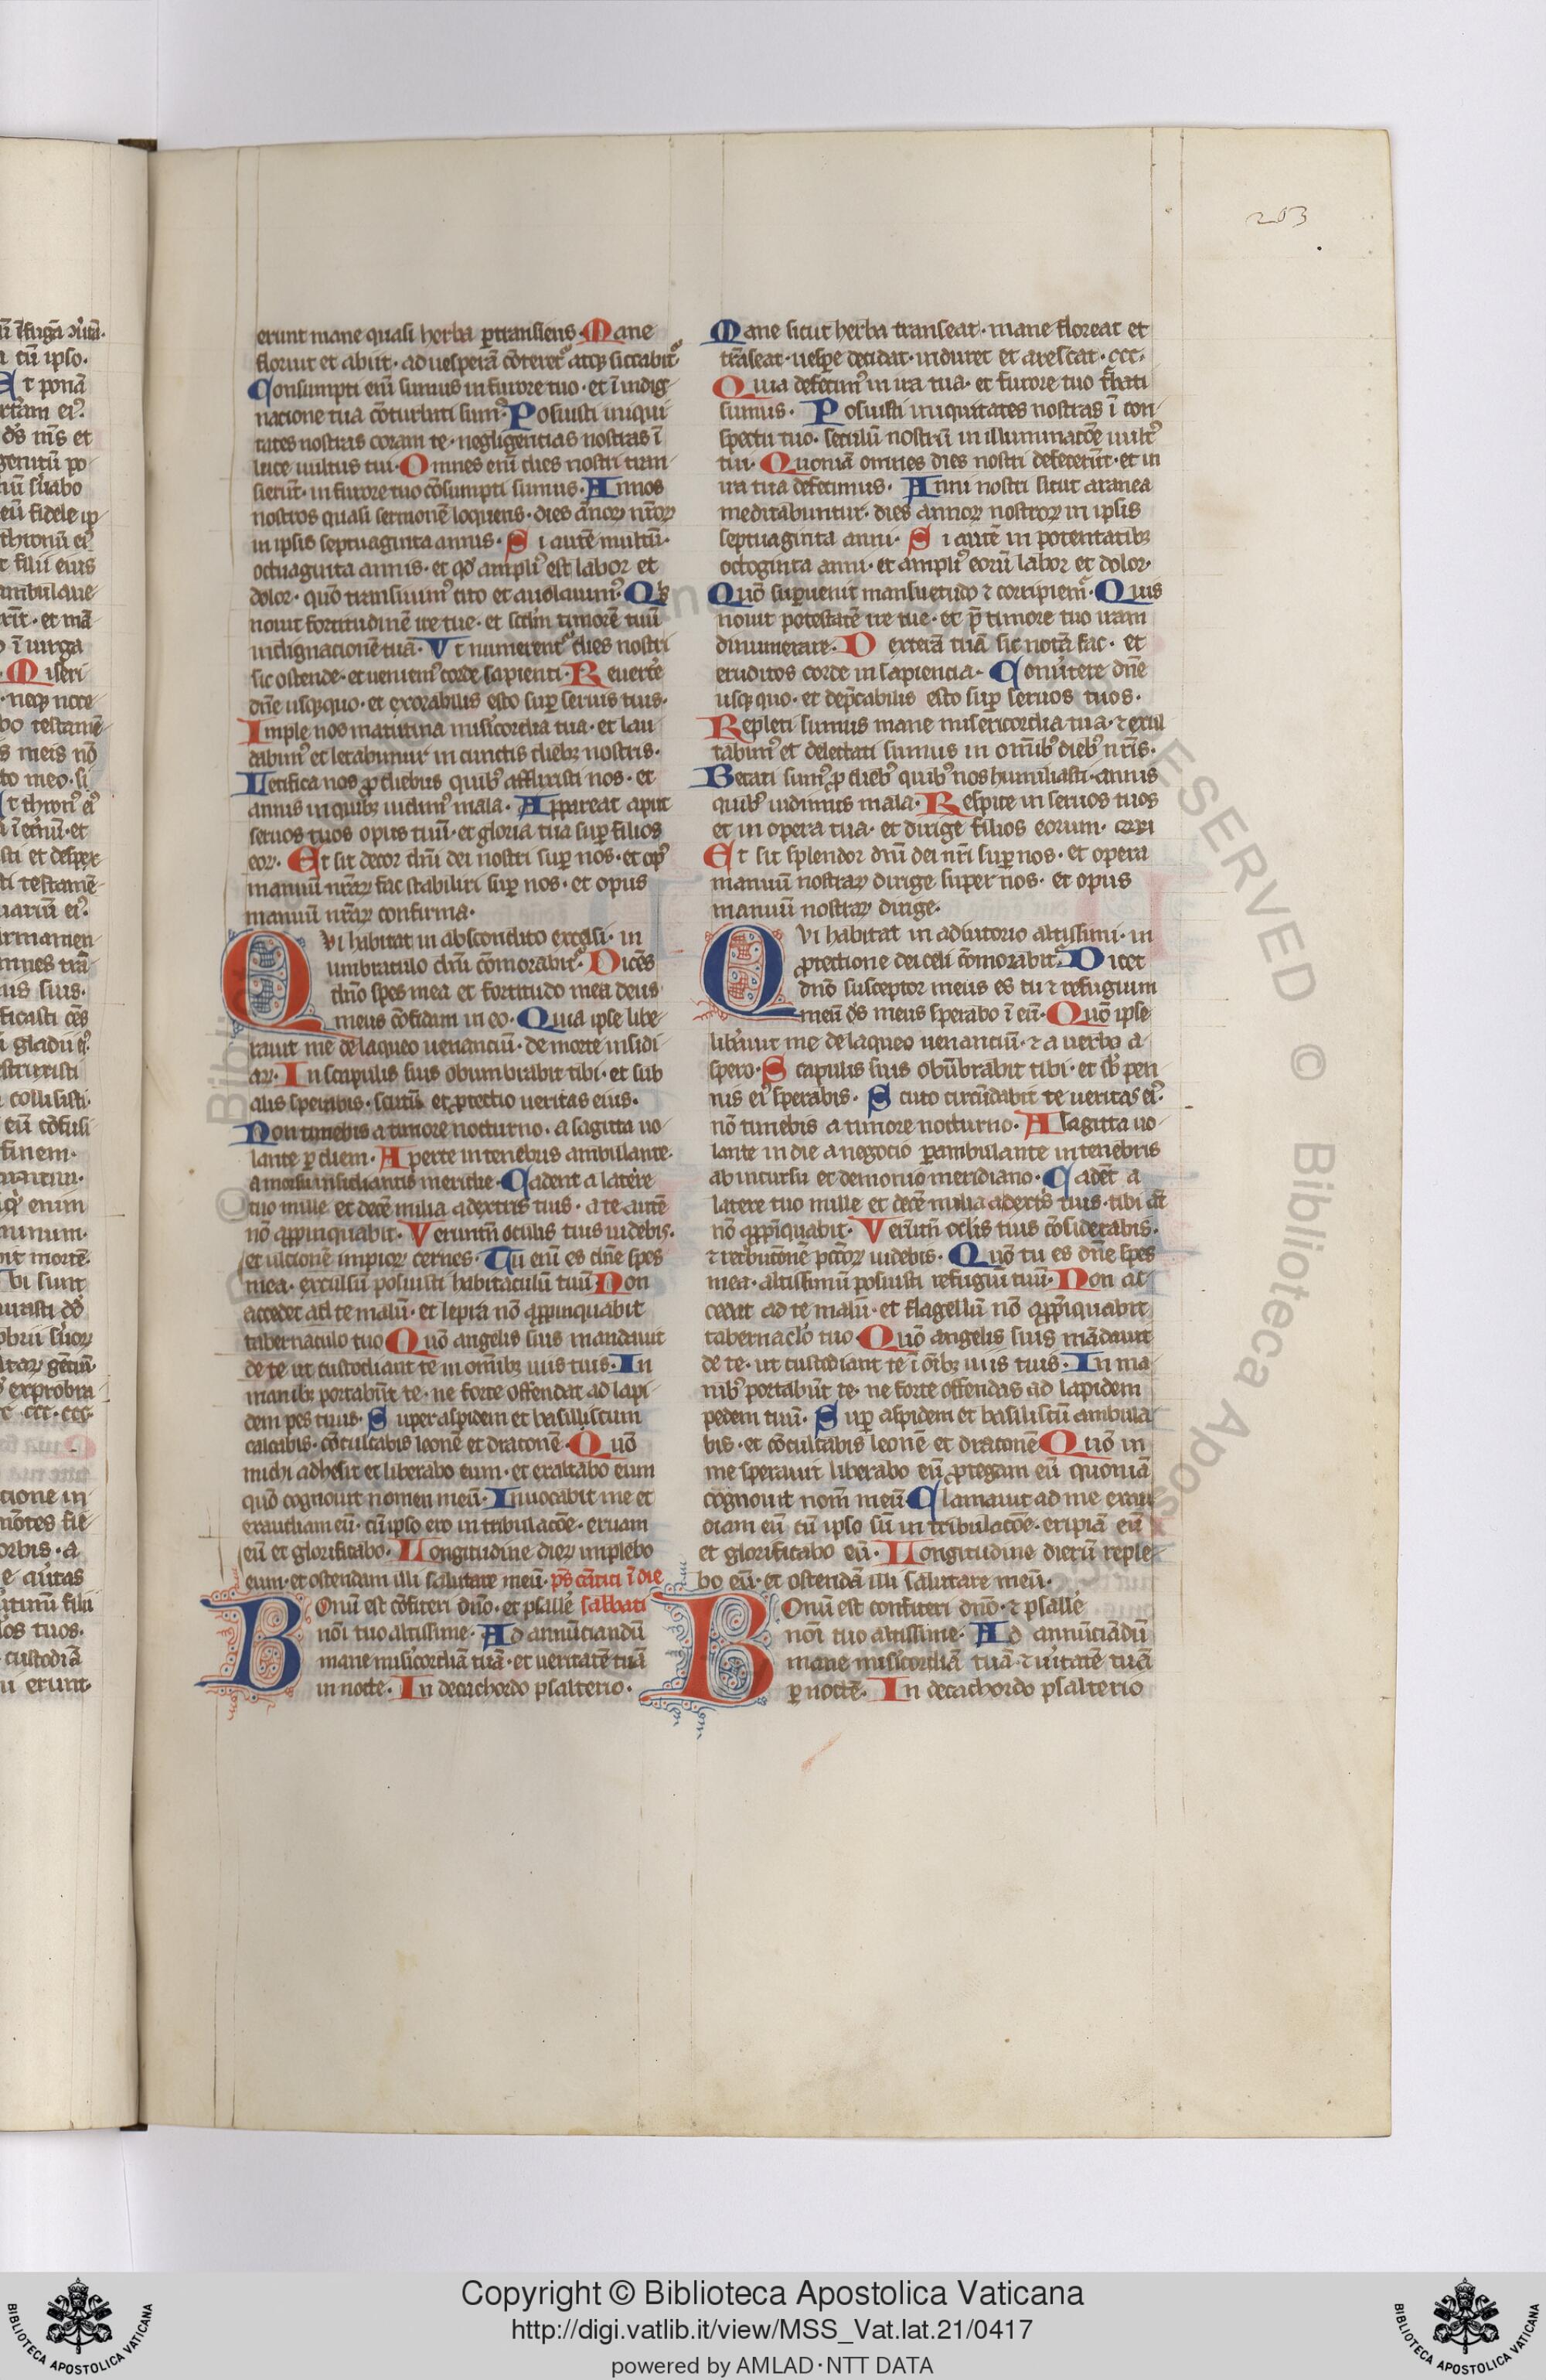 203
erunt mane quasi herba ꝑtransiens. Mane
floruit et abiit. ad uesperā cōteret᷑ atqꝫ siccabit᷑
Consumpti enī sumus in furore tuo. et ī indig
nacione tua cōturbati sumꝰ. Posuisti iniqui
tates nostras coram te. negligentias nostras ī
luce uultus tui. Omnes enī dies nostri tran
sierūt. in furore tuo cōsumpti sumus. Annos
nostros quasi sermonē loquens. dies ānoꝝ nr̄oꝝ
in ipsis septuaginta annis. Si autē multū.
octuaginta annis. et qd̕ ampliꝰ est labor et
dolor. quō transiuimꝰ cito et auolauimꝰ. Qis
nouit fortitudinē ire tue. et scd̄m timorē tuū
indignacionē tuā. Vt numerent᷑ dies nostri
sic ostende. et ueniemꝰ corde sapienti. Reuerte
dn̄e usqꝫquo. et exorabilis esto suꝑ seruis tuis.
Imple nos matutina misicordia tua. et lau
dabimꝰ et letabimur in cunctis diebꝫ nostris.
Letifica nos ꝓ diebus quibꝰ afflixisti nos. et
annis in quibꝫ uidimꝰ mala. Appareat aput
seruos tuos opus tuū. et gloria tua suꝑ filios
eoꝝ. Et sit decor dn̄i dei nostri suꝑ nos. et opꝰ
manuū nr̄aꝝ fac stabiliri suꝑ nos. et opus
manuū nr̄aꝝ confirma.
QVi habitat in abscondito excelsi. in
umbraculo dn̄i cōmorabit᷑. Dicēs
dn̄o spes mea et fortitudo mea deus
meus cōfidam in eo. Quia ipse libe
rauit me de laqueo uenanciū. de morte insidi
aꝝ. In scapulis suis obumbrabit tibi. et sub
alis sperabis. scutū et ꝓtectio ueritas eius.
Non timebis a timore nocturno. a sagitta uo
lante ꝑ diem. A peste in tenebris ambulante.
a morsu insidiantis meridie. Cadent a latere
tuo mille et decē milia a dextris tuis. a te autē
nō appinquabit. Veruntn̄ oculis tuis uidebis.
et ulcionē impioꝝ cernes. Tu enī es dn̄e spes
mea. excelsū posuisti habitaculū tuū. Non
accedet ad te malū. et lepra nō appinquabit
tabernaculo tuo Quō angelis suis mandauit
de te ut custodiant te in om̄ibꝫ uiis tuis. In
manibꝫ portabūt te. ne forte offendat ad lapi
dem pes tuus. Super aspidem et basiliscum
calcabis. cōculcabis leonē et draconē. Quō
michi adhesit et liberabo eum. et exaltabo eum
quō cognouit nomen meū. Inuocabit me et
exaudiam eū. cū ipso ero in tribulacōe. eruam
eū et glorificabo. Longitudine dieꝝ implebo
eum. et ostendam illi salutare meū. pꝰs cātici ī die
BOnū est cōfiteri dn̄o. et psalle sabbati
nōi tuo altissime. Ad annūciandū
mane misicordiā tuā. et ueritatē tuā
in nocte. In decachordo psalterio.
Mane sicut herba transeat. mane floreat et
trāseat. uespe decidat. induret et arescat. ccc.
Quia defecimꝰ in ira tua. et furore tuo t̄bati
sumus. Posuisti iniquitates nostras ī con
spectu tuo. seculū nostrū in illuminacōe uultꝰ
tui. Quoniā omnes dies nostri defecerūt. et in
ira tua defecimus. Anni nostri sicut aranea
meditabuntur. dies annoꝝ nostroꝝ in ipsis
septuaginta anni. Si autē in potentatibꝫ
octoginta anni. et ampliꝰ eorū labor et dolor.
Quō suꝑuenit mansuetudo ⁊ corripiem᷑. Quis
nouit potestatē ire tue. et p̄ timore tuo iram
dinumerare. Dexterā tuā sic notā fac. et
eruditos corde in sapiencia. Conũtere dn̄e
usqꝫ quo. et dep̄cabilis esto suꝑ seruos tuos.
Repleti sumus mane misericordia tua. ⁊ exul
tabimꝰ et delectati sumus in om̄ibꝰ diebꝰ nr̄is.
Letati sumꝰ ꝓ diebꝰ quibꝰ nos humiliasti. annis
quibꝰ uidimus mala. Respice in seruos tuos
et in opera tua. et dirige filios eorum.
Et sit splendor dn̄i dei nr̄i suꝑ nos. et opera
manuū nostraꝝ dirige super nos. et opus
manuū nostraꝝ dirige.
QVi habitat in adiutorio altissimi. in
ꝓtectione dei celi cōmorabit᷑. Dicet
dn̄o susceptor meus es tu ⁊ refugium
meū dꝰs meus sperabo ī eū. Quō ipse
libauit me de laqueo uenanciū. ⁊ a uerbo a
spero. Scapulis suis obūbrabit tibi. et sb̕ pen
nis eiꝰ sperabis. Scuto circūdabit te ueritas eiꝰ.
nō timebis a timore nocturno. A sagitta uo
lante in die a negocio ꝑambulante in tenebris
ab incursu et demonio meridiano. Cadēt a
latere tuo mille et decē milia a dextris tuis. tibi at̄
nō appīquabit. Verūtn̄ oclis tuis cōsiderabis.
⁊ retbucōnē pctōꝝ uidebis. Quō tu es dn̄e spes
mea. altissimū posuisti refugiū tuū. Non ac
cedit ad te malū. et flagellū nō appīquabit
tabernaclo tuo. Quō angelis suis mādauit
de te. ut custodiant te ī oībꝫ uiis tuis. In ma
nibꝰ portabūt te. ne forte offendas ad lapidem
pedem tuū. Suꝑ aspidem et basiliscū ambula
bis. et cōculcabis leonē et draconē Quō in
me sperauit liberabo eū ꝓtegam eū quoniā
cognouit nom̄ meū Clamauit ad me exau
diam eū cū ipso sū in tribulacōe. eripiā eū
et glorificabo eū. Longitudine dierū reple
bo eū. et ostendā illi salutare meū.
BOnū est confiteri dn̄o. ⁊ psalle
nōi tuo altissime. Ad annūciādū
mane misicordiā tuā. ⁊ uitatē tuā
ꝑ noctē. In decachordo psalterio
Copyright © Biblioteca Apostolica Vaticana
http://digi.vatlib.it/view/MSS_Vat.lat.21/0417
powered by AMLAD·NTT DATA
BIBLIOTECA APOSTOLICA VATICANA
BIBLIOTECA APOSTOLICA VATICANA